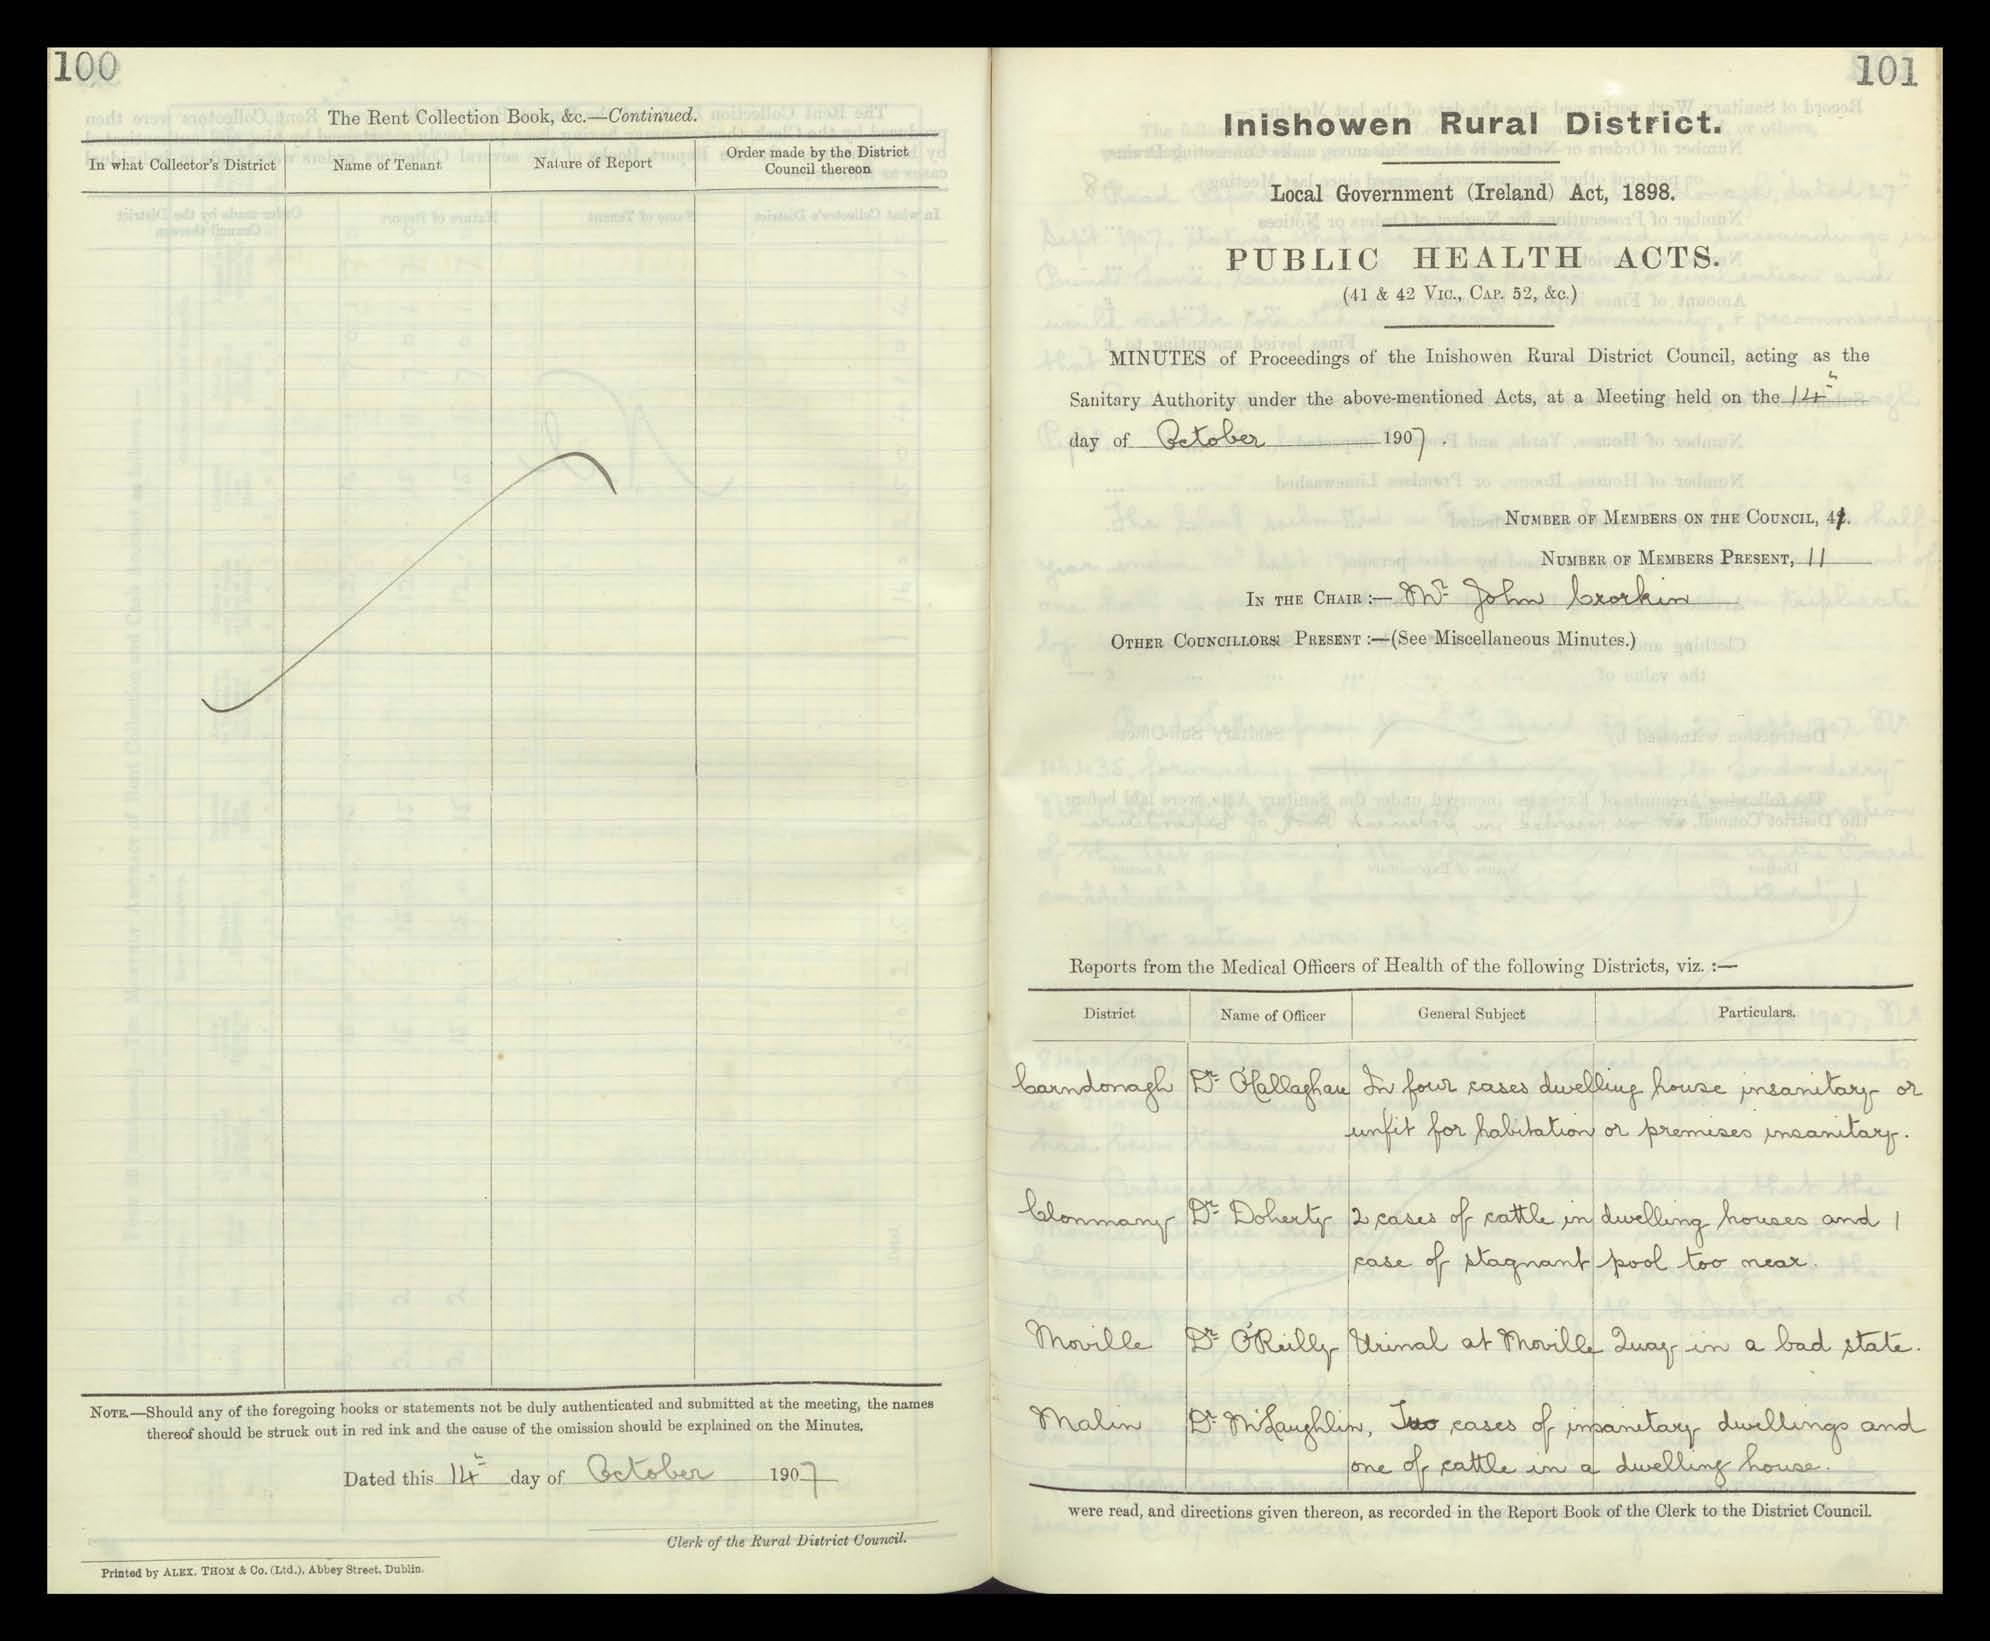 100
The Rent Collection Book, &c.—Continued.
In what Collector's District
Name of Tenant
Nature of Report
Order made by the District
Council thereon
NOTE.—Should any of the foregoing books or statements not be duly authenticated and submitted at the meeting, the names
thereof should be struck out in red ink and the cause of the omission should be explained on the Minutes.
Dated this 14th day of October 1907
Clerk of the Rural District Council.
Printed by ALEX. THOM & Co. (Ltd.), Abbey Street, Dublin.
101
Inishowen Rural District.
Local Government (Ireland) Act, 1898.
PUBLIC HEALTH ACTS.
(41 & 42 VIC., CAP. 52, &c.)
MINUTES of Proceedings of the Inishowen Rural District Council, acting as the
Sanitary Authority under the above-mentioned Acts, at a Meeting held on the 14th
day of October 1907.
NUMBER OF MEMBERS ON THE COUNCIL,
NUMBER OF MEMBERS PRESENT, 11
IN THE CHAIR :— Mr John Crorkin
OTHER COUNCILLORS PRESENT :—(See Miscellaneous Minutes.)
Reports from the Medical Officers of Health of the following Districts, viz. :—
District
Name of Officer
General Subject
Particulars.
Carndonagh Dr O'Callaghan In four cases dwelling house insanitary or
unfit for habitation or premises insanitary.
Clonmany Dr Doherty 2 cases of cattle in dwelling houses and 1
case of stagnant pool too near.
Moville Dr O'Reilly Urinal at Moville Quay in a bad state.
Malin Dr McLaughlin, Two cases of insanitary dwellings and
one of cattle in a dwelling house.
were read, and directions given thereon, as recorded in the Report Book of the Clerk to the District Council.